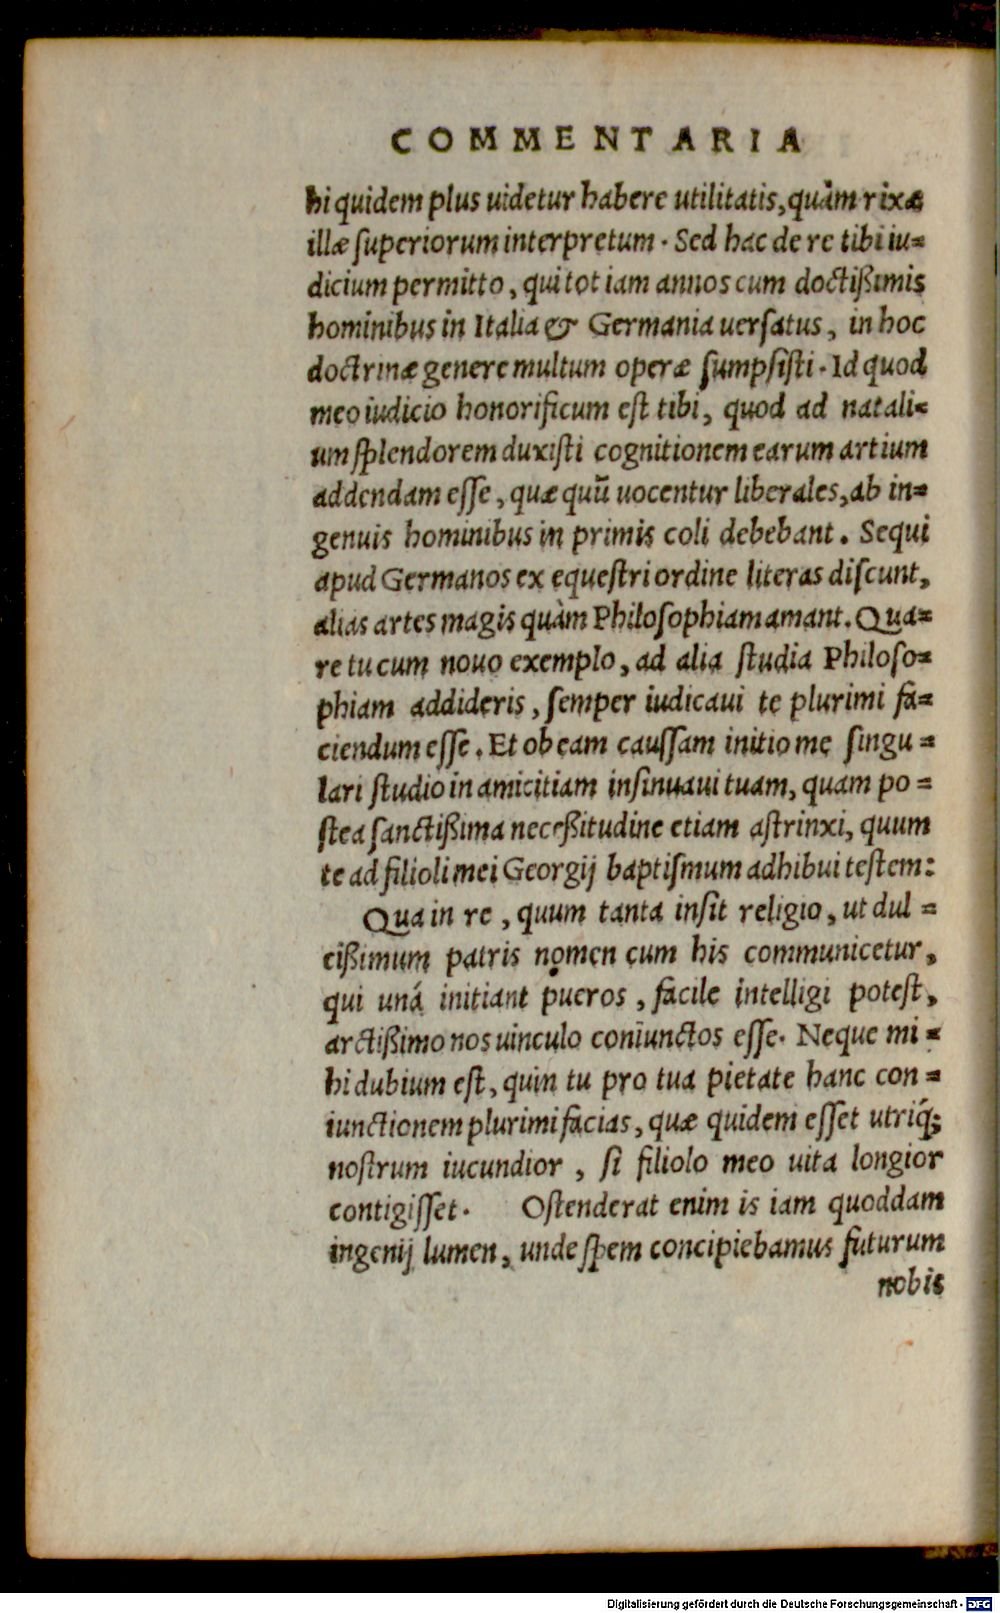 COMMENTARIA
hi quidem plus uidetur habere utilitatis, quàm rixæ
illæ superiorum interpretum. Sed hac de re tibi iu=
dicium permitto, qui tot iam annos cum doctißimis
hominibus in Italia & Germania uersatus, in hoc
doctrinæ genere multum operæ sumpsisti. Id quod
meo iudicio honorificum est tibi, quod ad natali=
um splendorem duxisti cognitionem earum artium
addendam esse, quæ quū uocentur liberales, ab in=
genuis hominibus in primis coli debebant. Sequi
apud Germanos ex equestri ordine literas discunt,
alias artes magis quàm Philosophiam amant. Qua=
re tu cum nouo exemplo, ad alia studia Philoso=
phiam addideris, semper iudicaui te plurimi fa=
ciendum esse. Et ob eam caussam initio me singu=
lari studio in amicitiam insinuaui tuam, quam po=
stea sanctißima neceßitudine etiam astrinxi, quum
te ad filioli mei Georgij baptismum adhibui testem:
Qua in re, quum tanta insit religio, ut dul=
cißimum patris nomen cum his communicetur,
qui unà initiant pueros, facile intelligi potest,
arctißimo nos uinculo coniunctos esse. Neque mi=
hi dubium est, quin tu pro tua pietate hanc con=
iunctionem plurimi facias, quæ quidem esset utriq́;
nostrum iucundior, si filiolo meo uita longior
contigisset. Ostenderat enim is iam quoddam
ingenij lumen, unde spem concipiebamus futurum
nobis
Digitalisierung gefördert durch die Deutsche Forschungsgemeinschaft - DFG